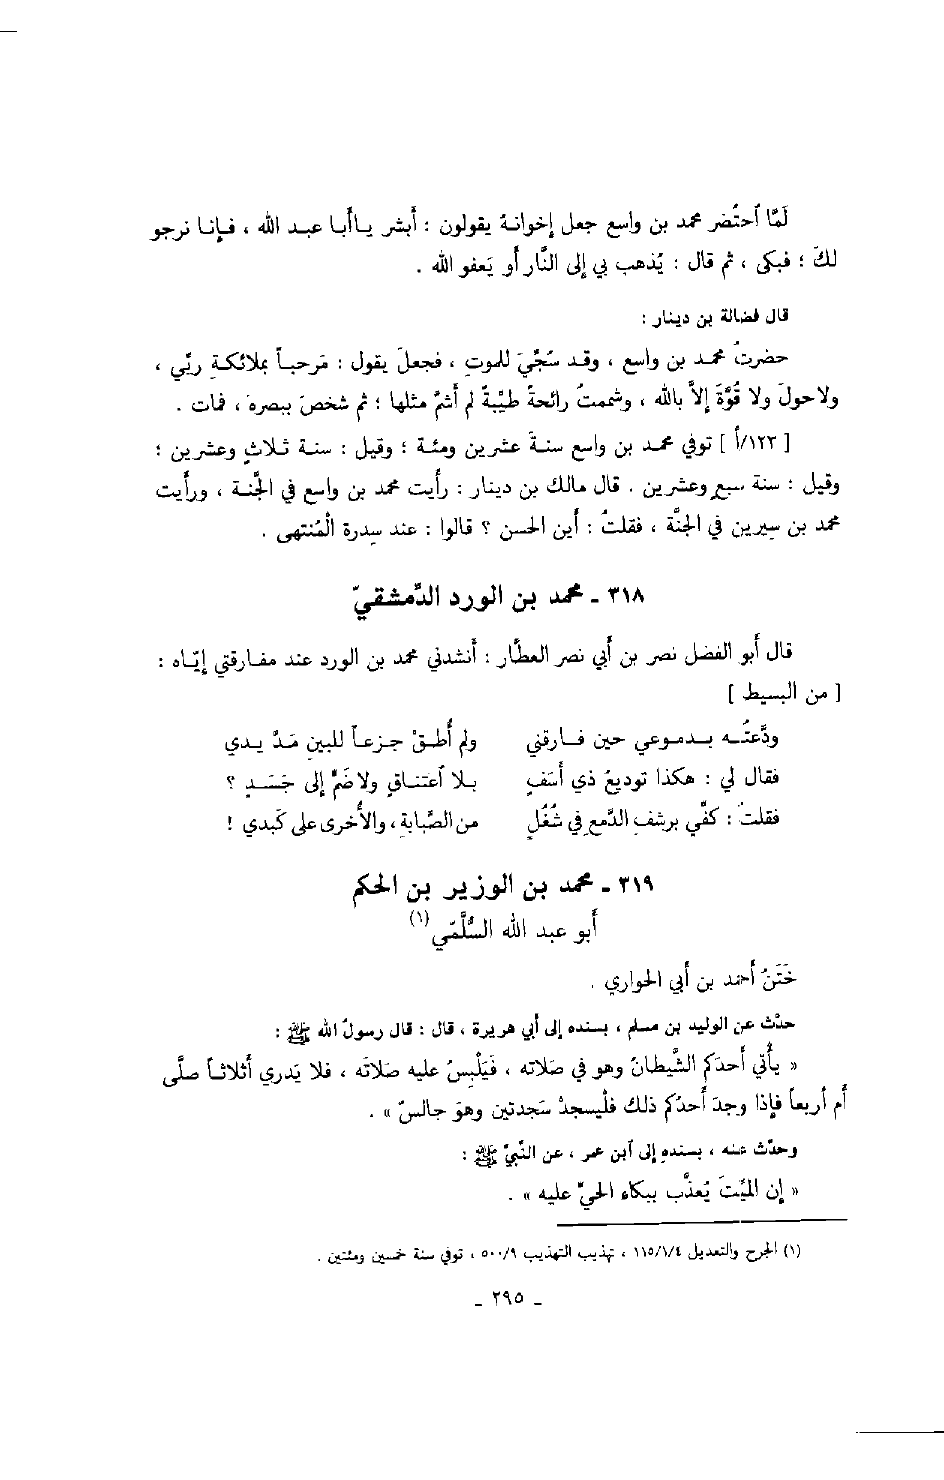 لَمَّا ٱحتُضر محمد بن واسع جعل إخوانهُ يقولون : أبشر ياأبا عبد الله ، فإنا نرجو
لكَ ؛ فبكى ، ثم قال : يُذهب بي إلى النَّار أو يَعفو الله .
قال فضالة بن دينار :
حضرتُ محمد بن واسع ، وقد سُجِّيَ للموتِ ، فجعلَ يقول : مَرحباً بملائكةِ ربِّي ،
ولاحولَ ولا قُوَّةَ إلاَّ بالله ، وشممتُ رائحةً طيِّبةً لم أشمَّ مثلها ؛ ثم شخصَ ببصرهِ ، فمات .
[ ١٢٣/أ ] توفي محمد بن واسع سنةَ عشرين ومئة ؛ وقيل : سنة ثلاثٍ وعشرين ؛
وقيل : سنة سبعٍ وعشرين . قال مالك بن دينار : رأيت محمد بن واسع في الجَّنة ، ورأيت
محمد بن سيرين في الجنَّة ، فقلتُ : أين الحسن ؟ قالوا : عند سِدرة الْمُنتهى .
٣١٨ ـ محمد بن الورد الدِّمشقيّ
قال أبو الفضل نصر بن أبي نصر العطَّار : أنشدني محمد بن الورد عند مفارقتي إيّاه :
[ من البسيط ]
ودَّعتُه بدموعي حين فارقني ولم أُطقْ جزعاً للبينِ مَدَّ يدي
فقال لي : هكذا توديعُ ذي أسَفٍ بلا ٱعتناقٍ ولاضَمٍّ إلى جَسَدٍ ؟
فقلتُ : كفِّي برشفِ الدَّمعِ في شُغُلٍ من الصَّبابةِ ، والأُخرى على كَبدي !
٣١٩ ـ محمد بن الوزير بن الحكم
أبو عبد الله السُّلَمِّي (١)
خَتَنُ أحمد بن أبي الحواري .
حدَّث عن الوليد بن مسلم ، بسنده إلى أبي هريرة ، قال : قال رسولُ الله ﷺ :
« يأتي أحدَكم الشَّيطانُ وهو في صَلاته ، فَيَلْبِسُ عليه صَلاتَه ، فلا يَدري أثلاثاً صلَّى
أم أربعاً فإذا وجدَ أحدُكم ذلك فلْيسجدْ سَجدتين وهوَ جالسٌ » .
وحدَّث عنه ، بسندهِ إلى ٱبن عمر ، عن النَّبيِّ ﷺ :
« إن الميِّتَ يُعذَّب ببكاء الحيِّ عليه » .
(١) الجرح والتعديل ١١٥/١/٤ ، تهذيب التهذيب ٥٠٠/٩ ، توفي سنة خمسين ومئتين .
ـ ٢٩٥ ـ